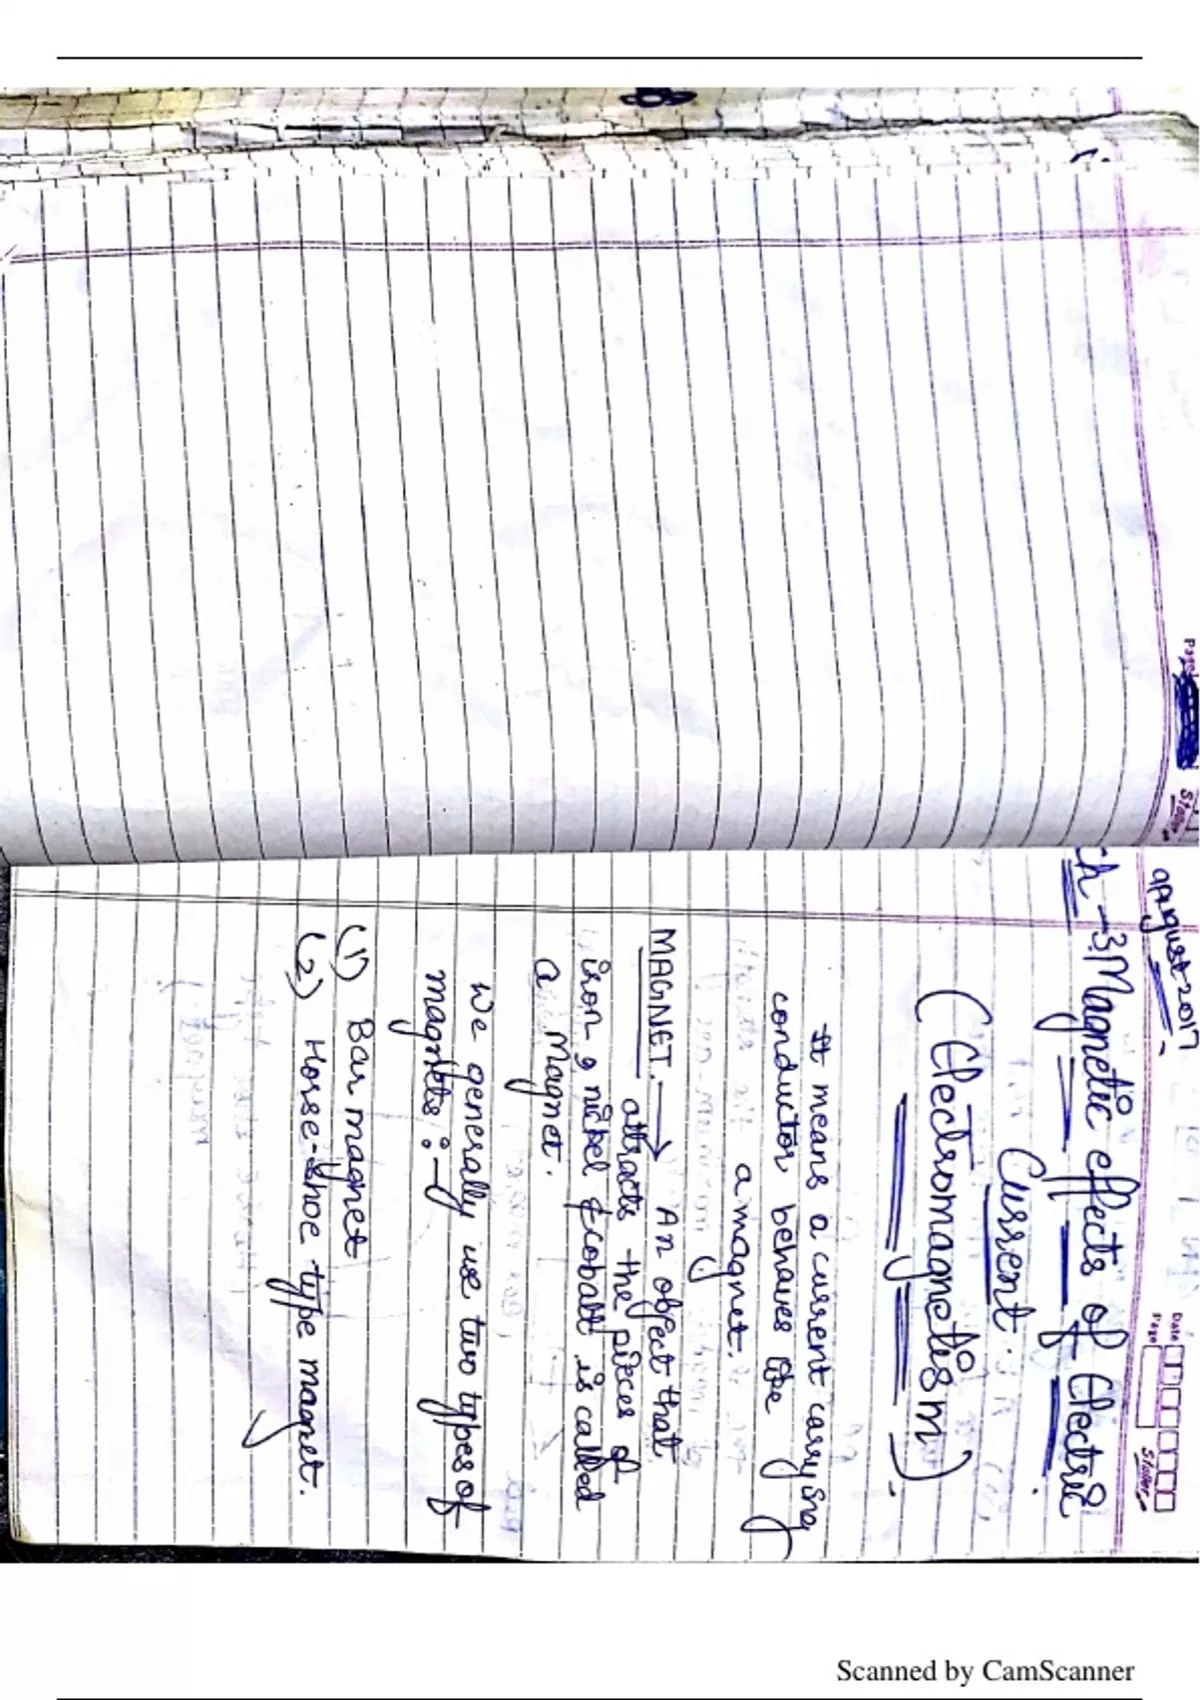 Page
9August-2017
Date
Page
Ch-3 Magnetic effects of Electric
Current.
(Electromagnetism)
It means a current carrying
conductor behaves like
a magnet.
MAGNET. → An object that
attracts the pieces of
iron, nickel & cobalt is called
a Magnet.
We generally use two types of
magnets :-
(1) Bar magnet
(2) Horse-shoe type magnet.
Scanned by CamScanner